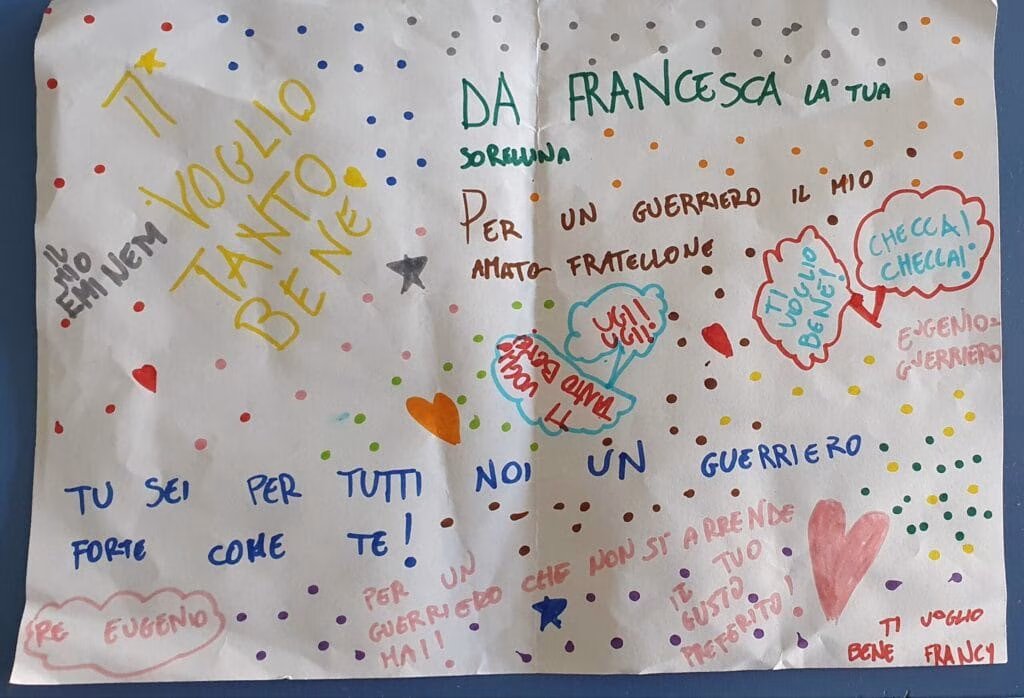 TI
VOGLIO
TANTO
BENE
IL
MIO
EMINEM
DA FRANCESCA LA TUA
SORELLINA
PER UN GUERRIERO IL MIO
AMATO FRATELLONE
CHECCA!
CHECCA!
TI
VOGLIO
BENE!
EUGENIO=
GUERRIERO
TI VOGLIO
TANTO BENE!
TU SEI PER TUTTI NOI UN GUERRIERO
FORTE COME TE!
RE EUGENIO
PER UN
GUERRIERO CHE NON SI ARRENDE
MAI!
IL TUO
GUSTO
PREFERITO!
TI VOGLIO
BENE FRANCY